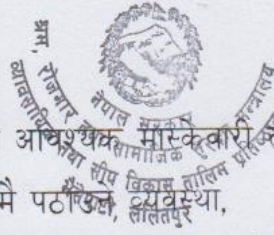 नेपाल सरकार
श्रम, रोजगार तथा सामाजिक सुरक्षा मन्त्रालय
व्यावसायिक तथा सीप विकास तालिम प्रतिष्ठान
ललितपुर
आवश्यक मास्केवारी
मै पठाउने व्यवस्था,